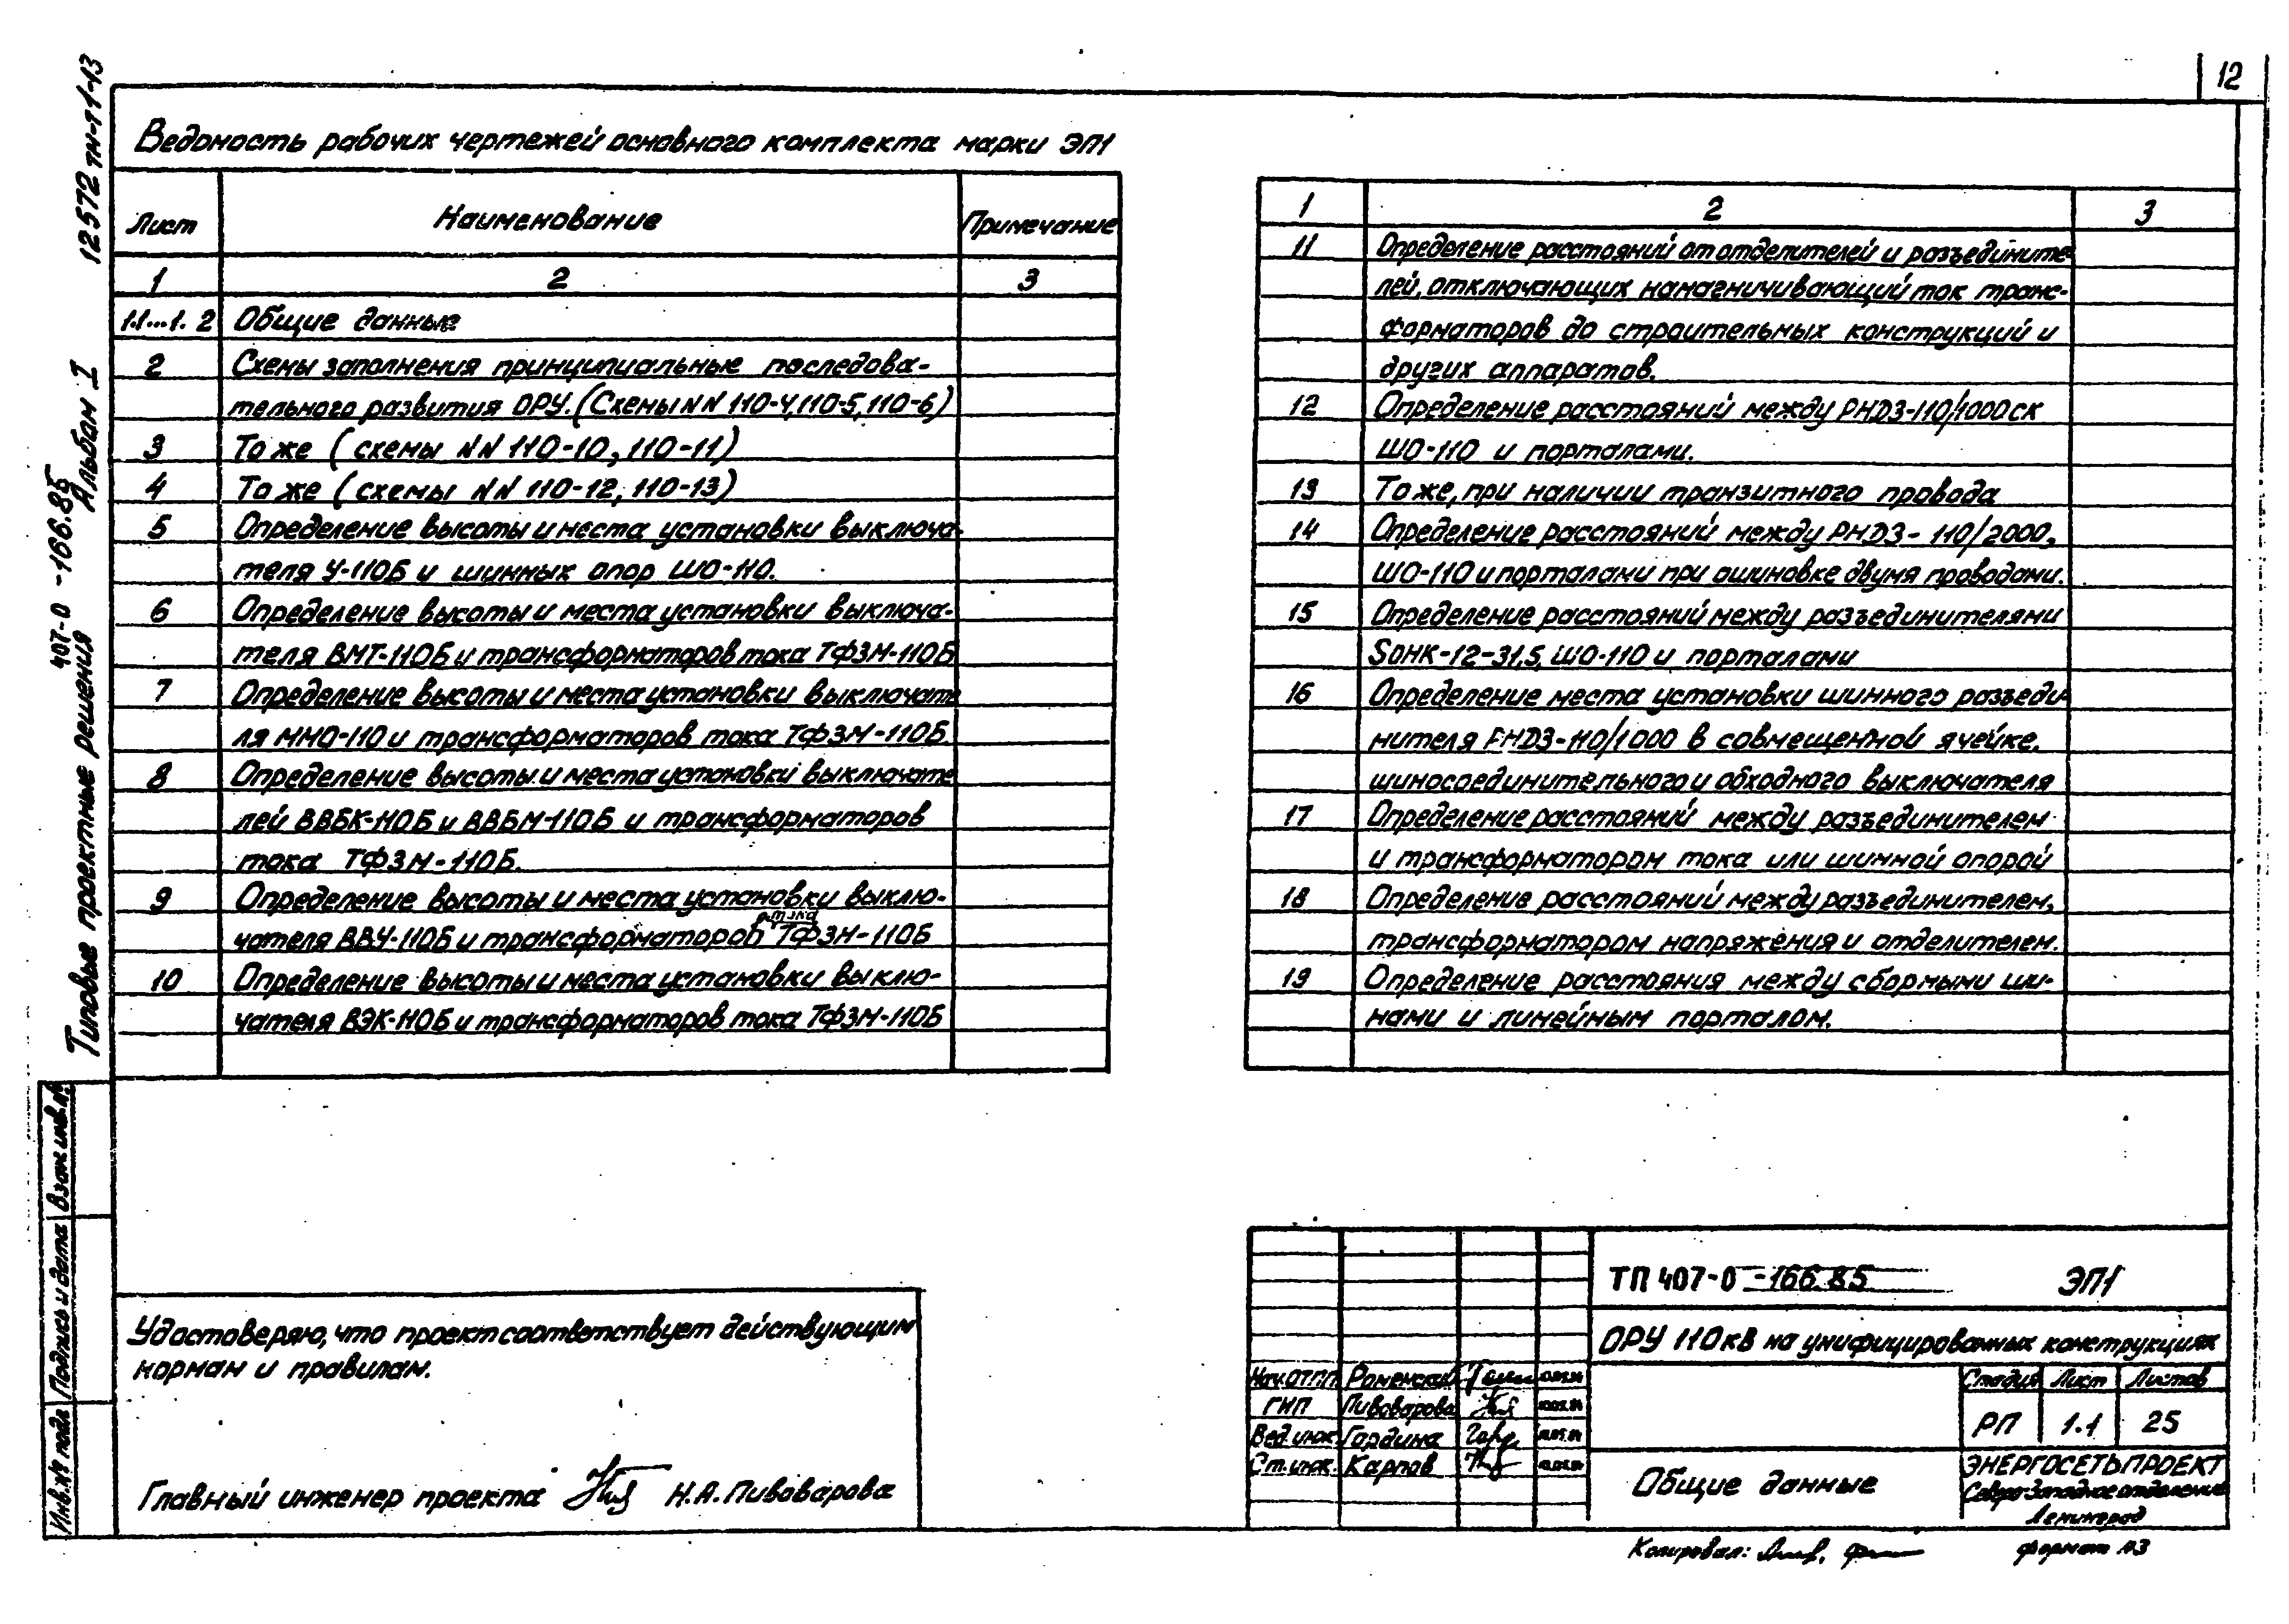 12
Ведомость рабочих чертежей основного комплекта марки ЭП1
Лист Наименование Примечание
1 2 3
1.1...1.2 Общие данные
2 Схемы заполнения принципиальные последова-
тельного развития ОРУ. (Схемы NN 110-4, 110-5, 110-6)
3 То же (схемы NN 110-10, 110-11)
4 То же (схемы NN 110-12, 110-13)
5 Определение высоты и места установки выключа-
теля У-110Б и шинных опор ШО-110.
6 Определение высоты и места установки выключа-
теля ВМТ-110Б и трансформаторов тока ТФЗМ-110Б
7 Определение высоты и места установки выключате
ля ММО-110 и трансформаторов тока ТФЗМ-110Б.
8 Определение высоты и места установки выключате
лей ВВБК-110Б и ВВБМ-110Б и трансформаторов
тока ТФЗМ-110Б.
9 Определение высоты и места установки выклю-
чателя ВВУ-110Б и трансформаторов тока ТФЗМ-110Б
10 Определение высоты и места установки выклю-
чателя ВЭК-110Б и трансформаторов тока ТФЗМ-110Б
1 2 3
11 Определение расстояний от отделителей и разъедините
лей, отключающих намагничивающий ток транс-
форматоров до строительных конструкций и
других аппаратов.
12 Определение расстояний между РНДЗ-110/1000 ск
ШО-110 и порталами.
13 То же, при наличии транзитного провода
14 Определение расстояний между РНДЗ-110/2000,
ШО-110 и порталами при ошиновке двумя проводами.
15 Определение расстояний между разъединителями
SОНК-12-31,5, ШО-110 и порталами
16 Определение места установки шинного разъеди-
нителя РНДЗ-110/1000 в совмещенной ячейке.
шиносоединительного и обходного выключателя
17 Определение расстояний между разъединителем
и трансформатором тока или шинной опорой
18 Определение расстояний между разъединителем,
трансформатором напряжения и отделителем.
19 Определение расстояния между сборными ши-
нами и линейным порталом.
Типовые проектные решения 407-0-166.85 Альбом I 12572тм-т1-13
Взам. инв. №
Подпись и дата
Инв. № подл
Удостоверяю, что проект соответствует действующим
нормам и правилам.
Главный инженер проекта Н.А. Пивоварова
ТП 407-0-166.85 ЭП1
ОРУ 110 кВ на унифицированных конструкциях
Нач. ОТПП Роменский
ГИП Пивоварова
Вед. инж. Гордина
Ст. инж. Карпов
Стадия Лист Листов
РП 1.1 25
Общие данные
ЭНЕРГОСЕТЬПРОЕКТ
Северо-Западное отделение
Ленинград
Копировал: формат А3